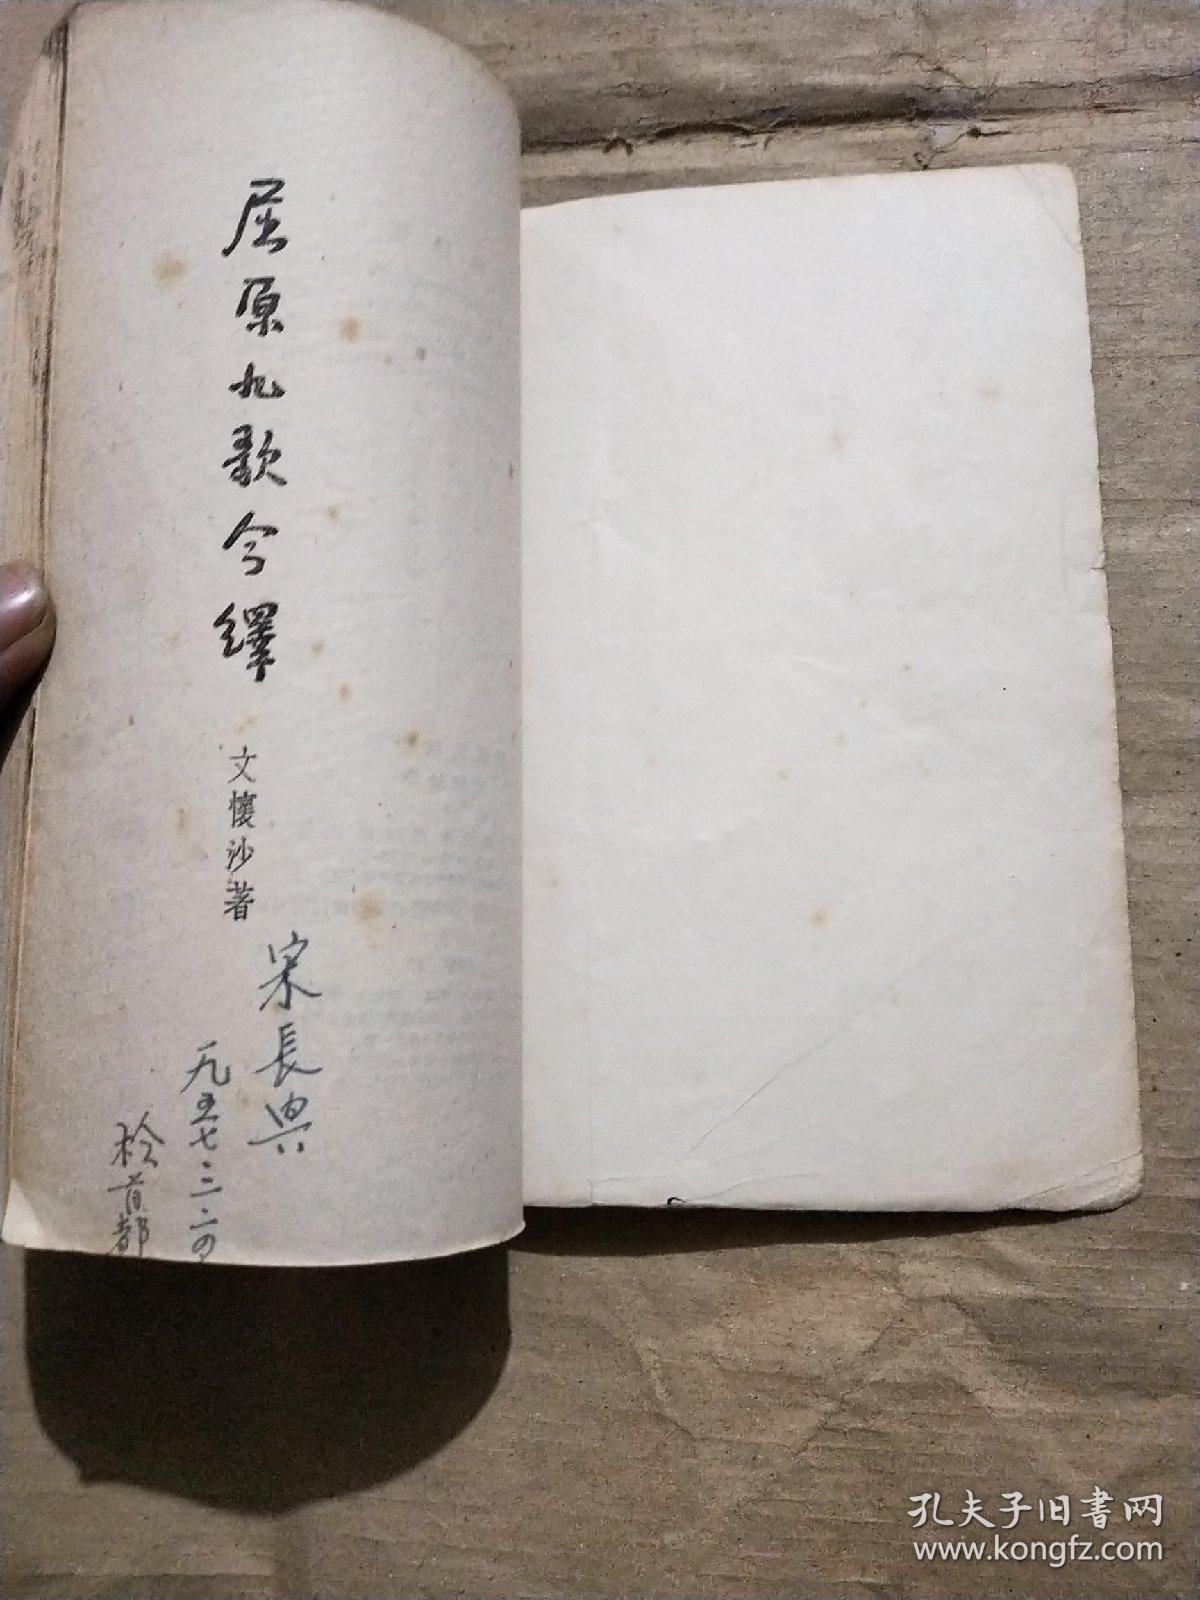 屈原九歌今繹
文懷沙著
宋長典
一九五七·三·二四
於首都
孔夫子旧書网
www.kongfz.com